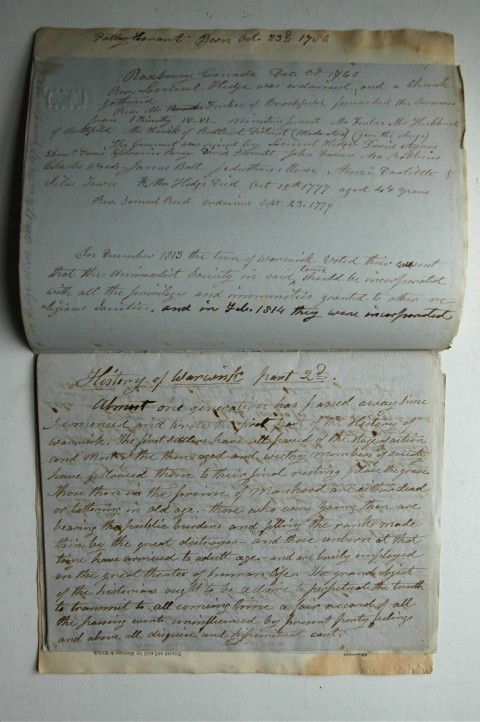 Born Oct. 23d 1786
Roxbury Canada Dec. 3d 1760
Rev. Lemuel Hedge was ordained, and a Church
gathered
Rev. Mr Forbes of Brookfield preached the Sermon
from 1 Timothy IV-VI- Ministers present Mr Forbes Mr Hubbard
of Northfield
The Covenant was signed by Lemuel Hedge David Ayres
James Ball Jeduthan Morse
Silas Town Mr Hedge Died Oct 18th 1777 aged 44 years
Rev. Samuel Reed ordained Sept. 23. 1779
In December 1813 the town of Warwick Voted their consent
that the Universalist Society in said town should be incorporated
with all the priviliges and immunities granted to other re-
ligious Societies, and in Feb. 1814 they were incorporated
History of Warwick part 2d.
Almost one generation has passed away Since
I commenced and wrote the first part of the History of
Warwick. The first settlers have all passed off the stage of action
and most of the then aged and worthy members of society
have followed them to their final resting place the grave
those then in the prime of manhood are either dead
or tottering in old age - those who were young then are
bearing the public burdens and filling the ranks made
thin by the great destroyer - and those unborn at that
time have arrived to adult age - and are busily employed
in the great theater of human life. The grand object
of the historian ought to be a desire to perpetuate the truth
to transmit to all coming time a fair record of all
the passing events uninfluenced by present party feelings
and above all disguise and hypocritical cant.